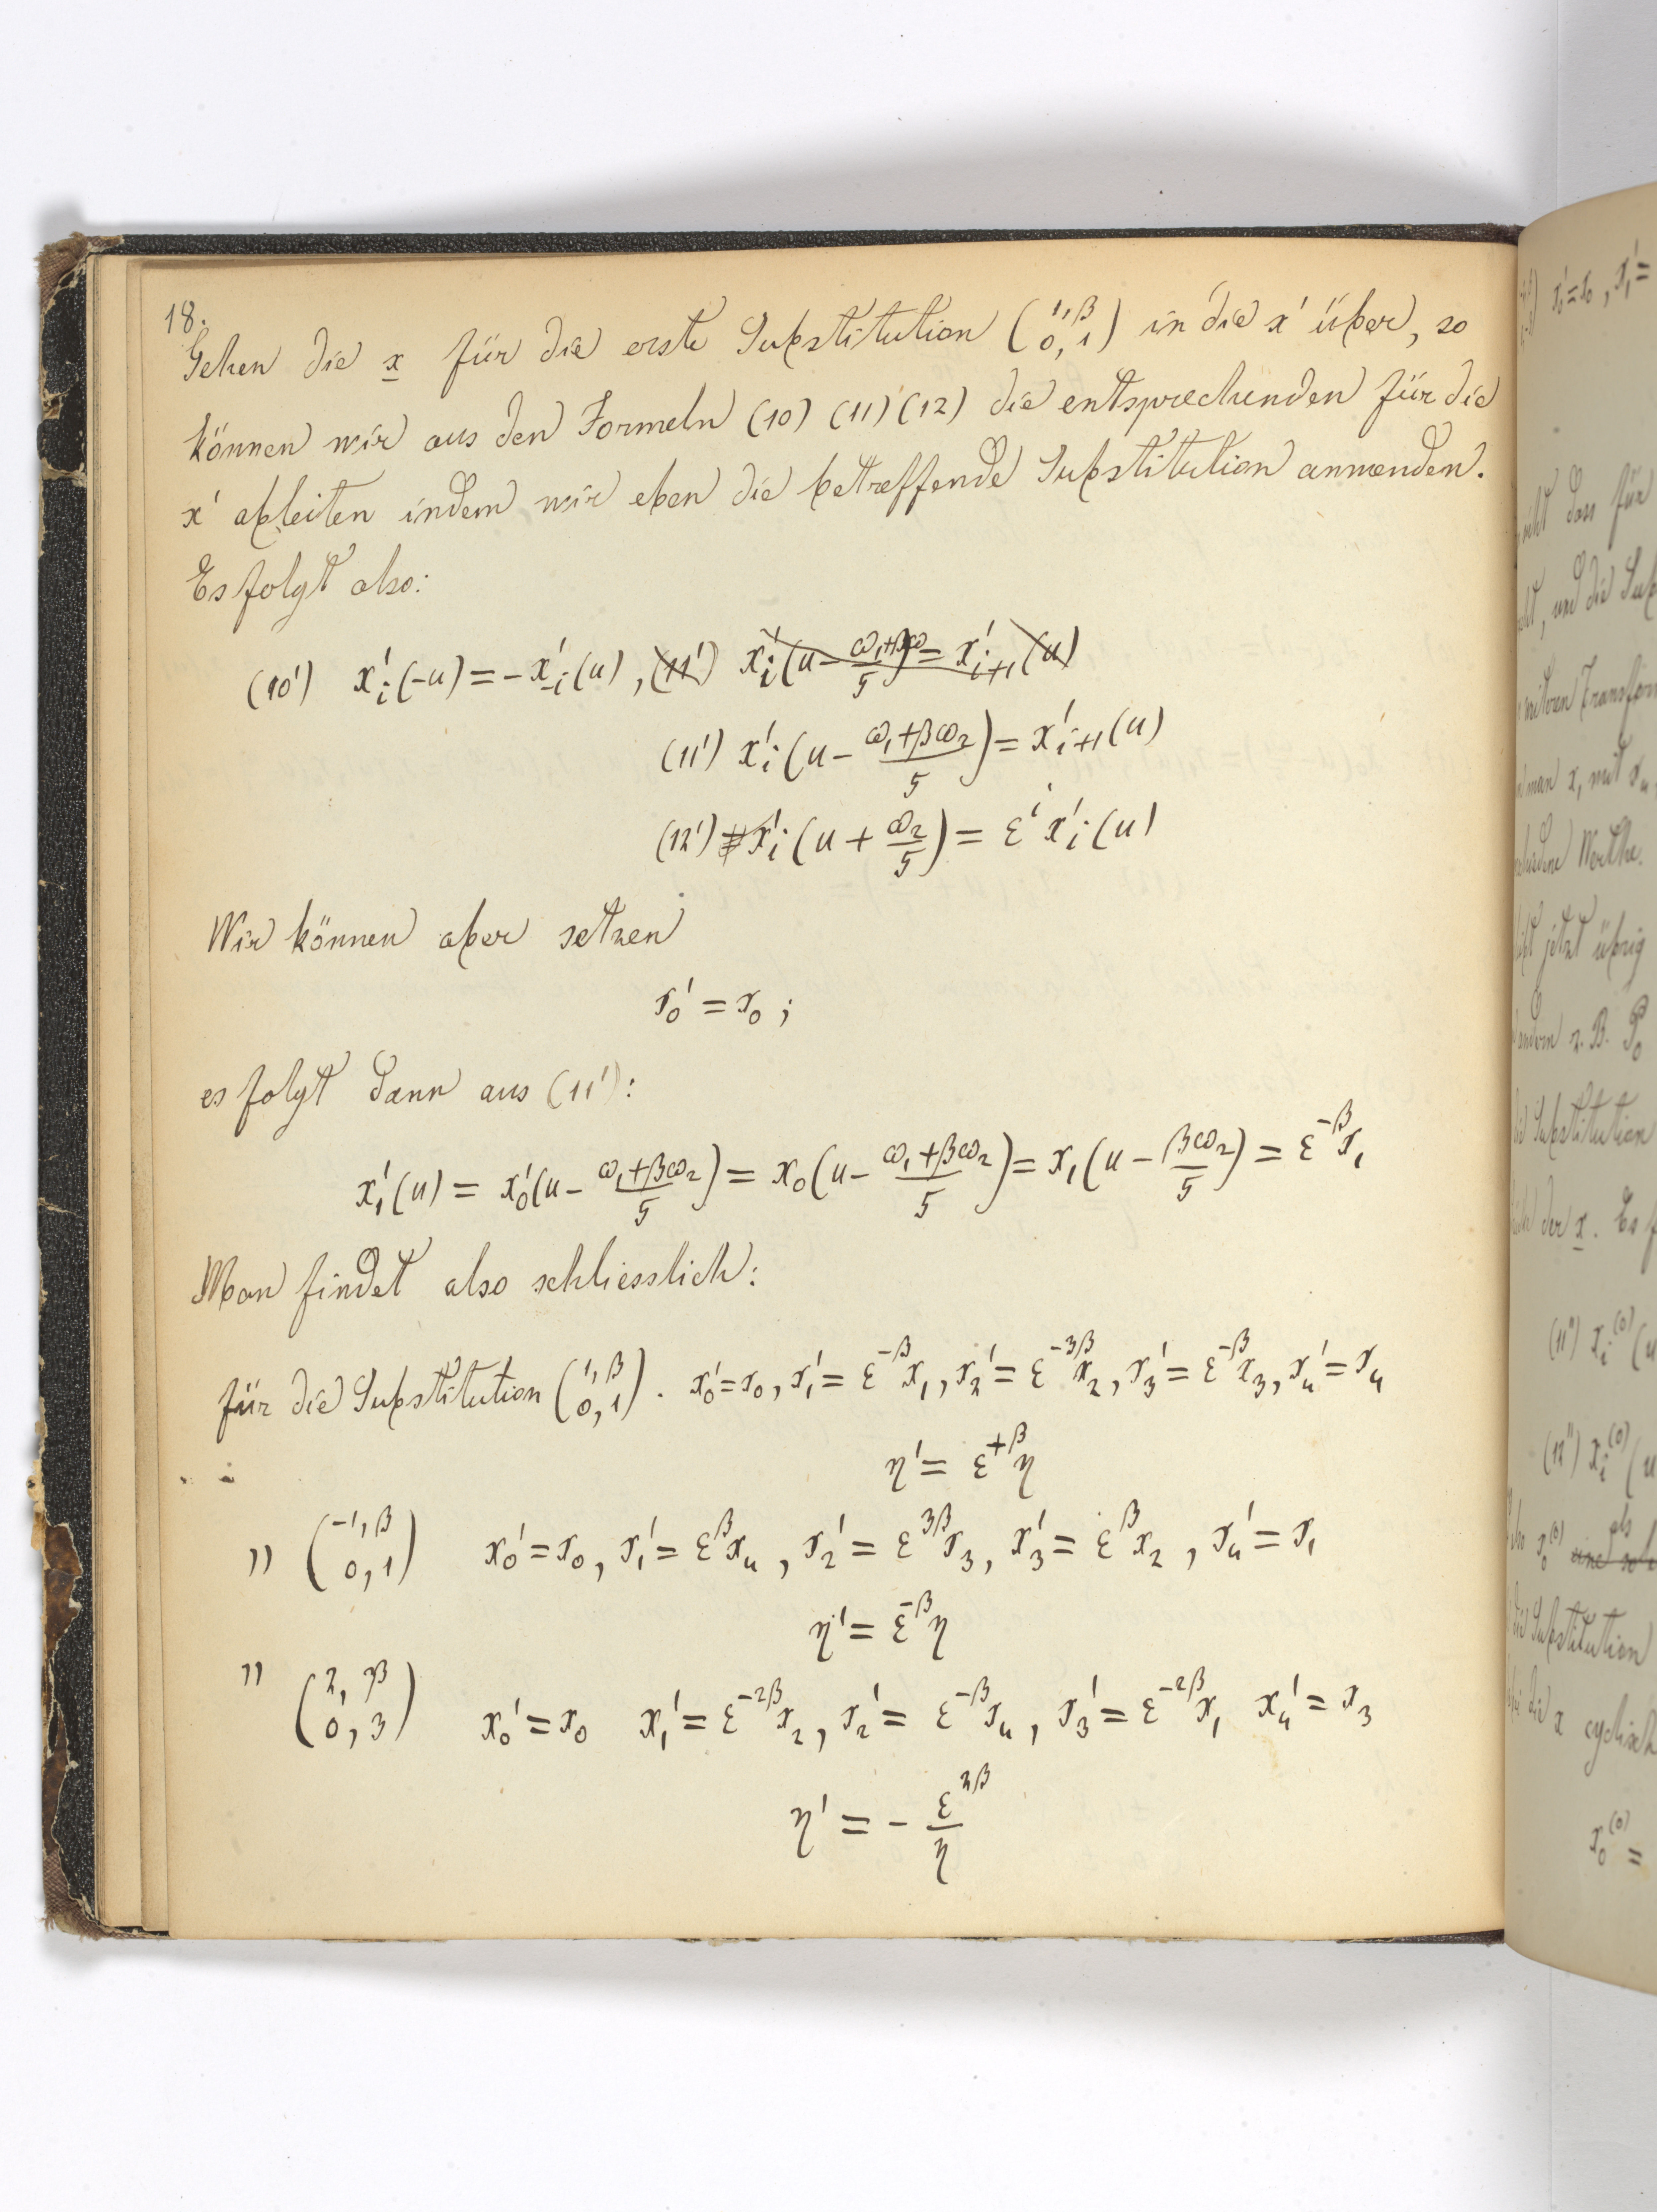 18.
Gehen die x für die erste Substitution (1, β / 0, 1) in die x' über, so
können wir aus den Formeln (10) (11) (12) die entsprechenden für die
x' ableiten indem wir eben die betreffende Substitution anwenden.
Es folgt also:
(10') x'_i(-u) = -x'_{-i}(u), (11') x'_i(u - (ω₁+βω)/5) = x'_{i+1}(u)
(11') x'_i(u - (ω₁+βω₂)/5) = x'_{i+1}(u)
(12') x'_i(u + ω₂/5) = ε^i x'_i(u)
Wir können aber setzen
x₀' = x₀ ;
es folgt dann aus (11'):
x₁'(u) = x₀'(u - (ω₁+βω₂)/5) = x₀(u - (ω₁+βω₂)/5) = x₁(u - βω₂/5) = ε^{-β} x₁
Man findet also schliesslich:
für die Substitution (1, β / 0, 1). x₀' = x₀, x₁' = ε^{-β} x₁, x₂' = ε^{-3β} x₂, x₃' = ε^{-β} x₃, x₄' = x₄
η' = ε^{+β} η
" (-1, β / 0, 1) x₀' = x₀, x₁' = ε^{β} x₄, x₂' = ε^{3β} x₃, x₃' = ε^{β} x₂, x₄' = x₁
η' = ε^{-β} η
" (2, β / 0, 3) x₀' = x₀ x₁' = ε^{-2β} x₂, x₂' = ε^{-β} x₄, x₃' = ε^{-2β} x₁ x₄' = x₃
η' = - ε^{2β}/η
x₁' =
für
und die Sub
weiteren Transfor
man x, mit x₄
Werthe.
jetzt übrig
andern z. B.
Substitution
der x. Es f
(11") x_i^{(0)} (u
(12") x_i^{(0)} (u
als
Substitution
die x cyclisch
x₀^{(0)} =